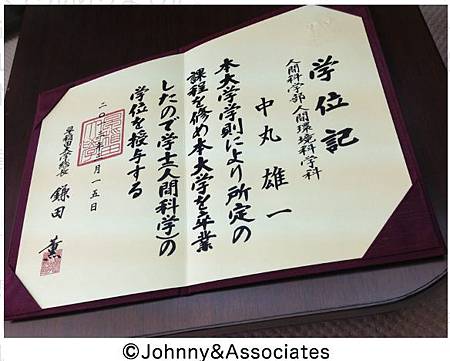 学位記
人間科学部人間環境科学科
中丸雄一
本大学学則により所定の
課程を修め本大学を卒業
したので学士(人間科学)の
学位を授与する
二〇 月一五日
早稲田大学総長 鎌田 薫
©Johnny&Associates